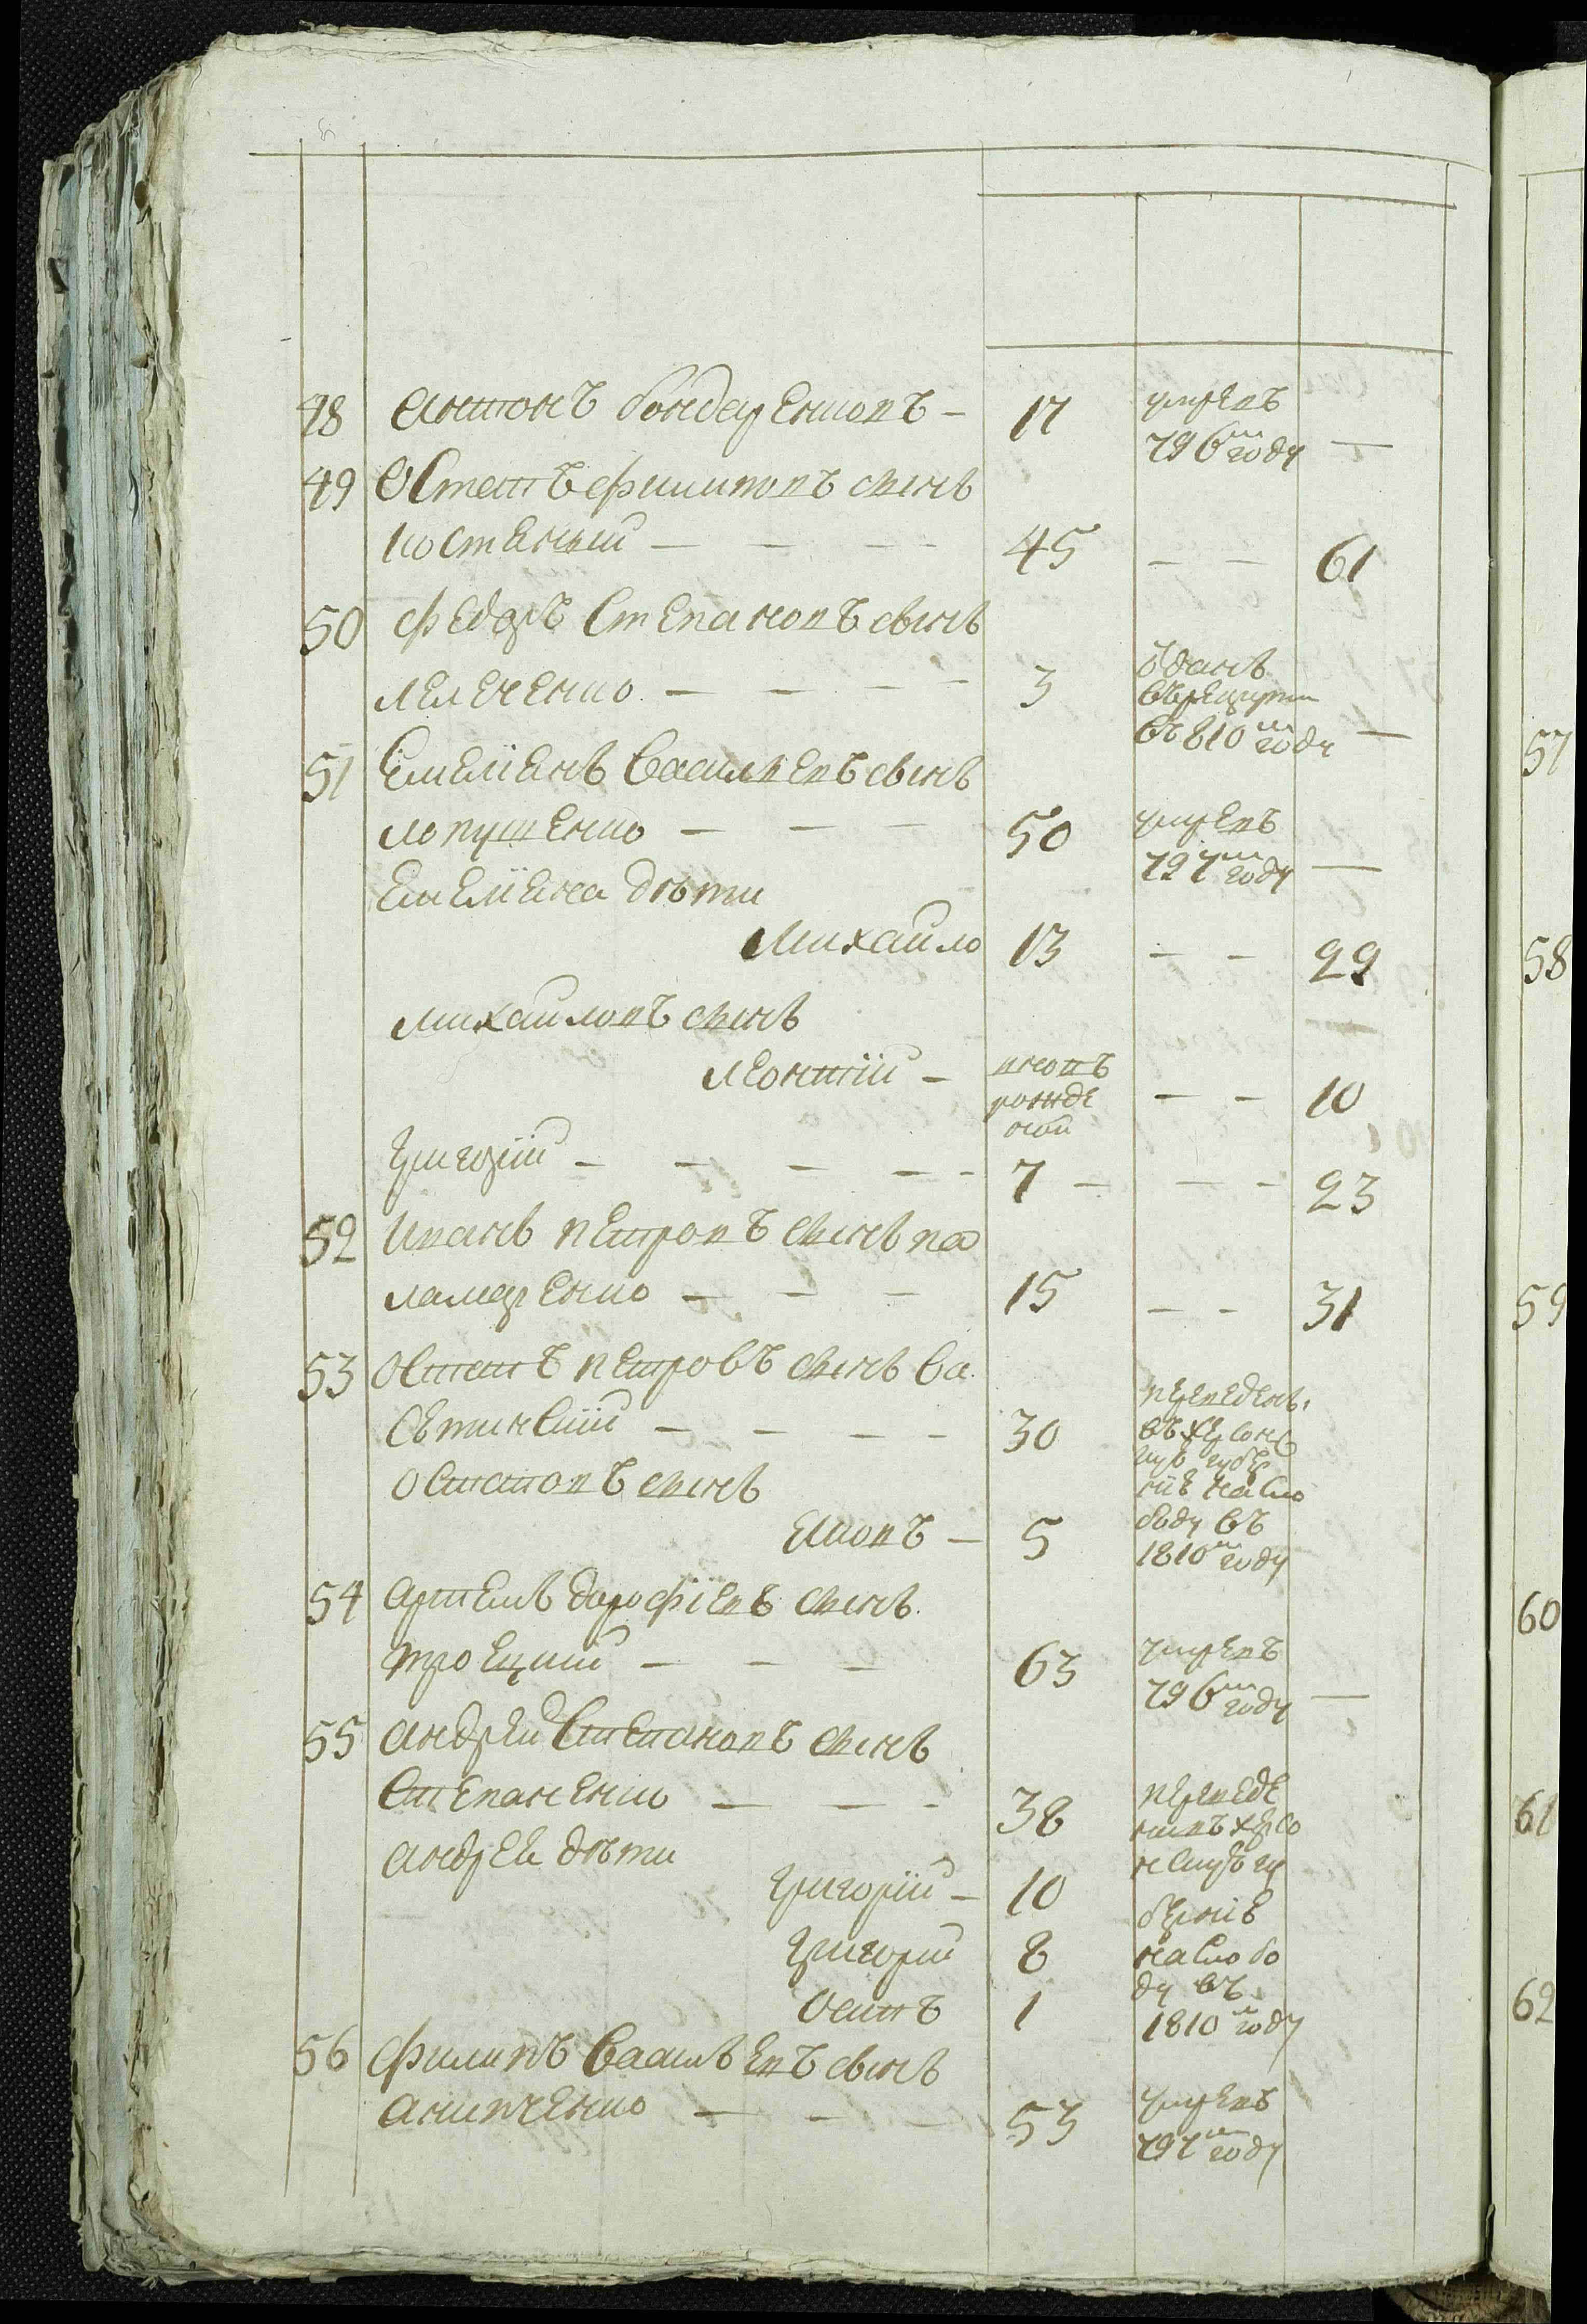 48 Антонъ бондаренковъ — 17 умревъ
796м году —
49 Остапъ филиповъ сынъ
костеный — — — 45 — — 61
50 федоръ Степановъ сынъ
лелеченко — — — — 3 Ѿданъ
въ рекруты
въ 810м году —
51 Емелианъ Васильевъ сынъ
лопушенко — — — 50 умревъ
797м году —
Емелиана дѣти
Михайло 13 — — 29
Михайловъ сынъ
леонтій — вновь
рожде
ной — — 10
Григорій — — — — — 7 — — — 23
52 Иванъ Петровъ сынъ па
ламаренко — — — 15 — — 31
53 Остапъ Петровъ сынъ Св
ѣтинскій — — — — 30 переведенъ
въ херсонс
кую губер
нію на сло
боду въ
1810м году
Остаповъ сынъ
Яковъ — 5
54 Артемъ дорофіевъ сынъ
троецкий — — — 63 умревъ
796м году —
55 Андрей Степановъ сынъ
Степаненко — — — 38 переведе
ны въ херсо
нскую гу
бернію
на слобо
ду въ
1810м году
Андрея дѣти
Григорій — 10
Григорий 8
Осипъ 1
56 Филипъ Васильевъ сынъ
Анипченко — — — 53 умревъ
797м году
57
58
59
60
61
62